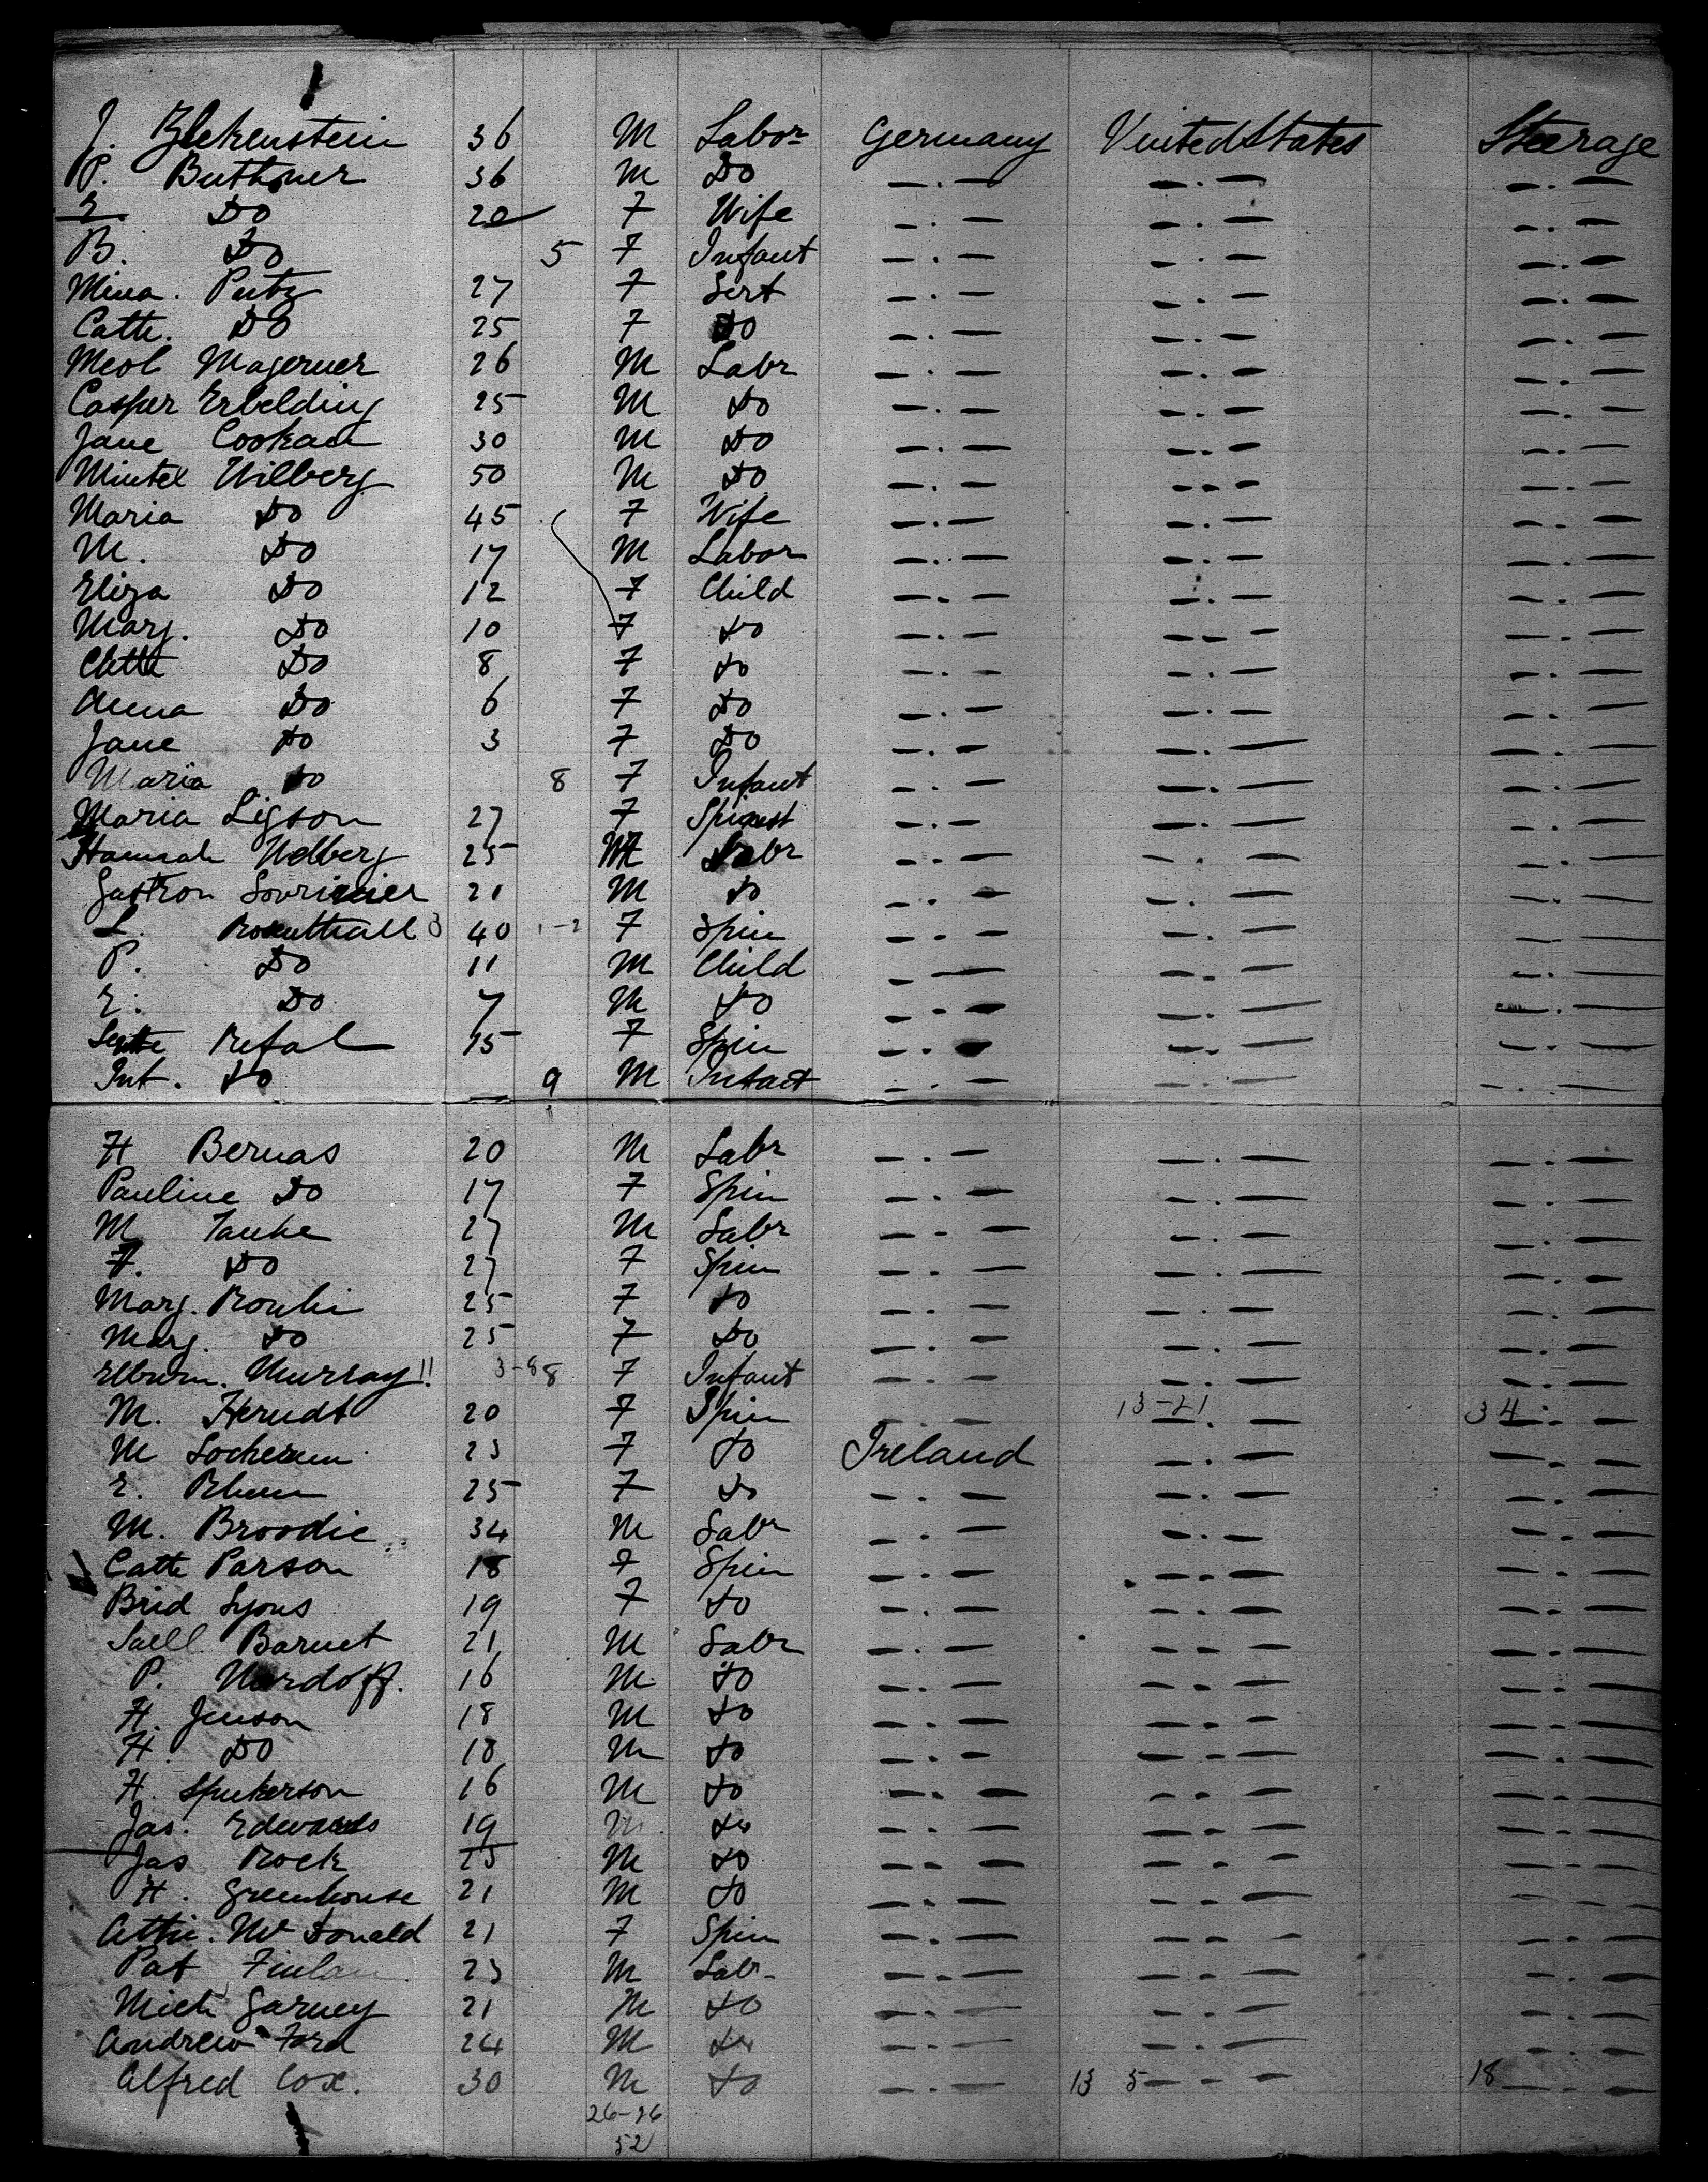 J. Blekenstein 36 M Labor Germany United States Steerage
P. Buthner 36 M Do —.— —.— —.—
E Do 20 F Wife —.— —.— —.—
B. Do 5 F Infant —.— —.— —.—
Mina. Putz 27 F Sert —.— —.— —.—
Cath. Do 25 F Do —.— —.— —.—
Meol Magerner 26 M Labr —.— —.— —.—
Casper Erbelding 25 M Do —.— —.— —.—
Jane Cookan 30 M Do —.— —.— —.—
Mintel Hilberg 50 M Do —.— —.— —.—
Maria Do 45 F Wife —.— —.— —.—
M. Do 17 M Labor —.— —.— —.—
Eliza Do 12 F Child —.— —.— —.—
Marg. Do 10 F Do —.— —.— —.—
Do 8 F Do —.— —.— —.—
Anna Do 6 F Do —.— —.— —.—
Jane Do 3 F Do —.— —.— —.—
Maria Do 8 F Infant —.— —.— —.—
Maria Ligson 27 F Spinst —.— —.— —.—
Hannah Udberg 25 Labr —.— —.— —.—
Gastron 21 M Do —.— —.— —.—
L. Rosenthall 3 40 1-2 F Spin —.— —.— —.—
P. Do 11 M Child —.— —.— —.—
E. Do 7 M Do —.— —.— —.—
Refal 15 F Spin —.— —.— —.—
Int. Do 9 M Infant —.— —.— —.—
H Bernas 20 M Labr —.— —.— —.—
Pauline Do 17 F Spin —.— —.— —.—
M Tanke 27 M Labr —.— —.— —.—
F. Do 27 F Spin —.— —.— —.—
Marg. 25 F Do —.— —.— —.—
Marg. Do 25 F Do —.— —.— —.—
Murray !! 3-8 8 F Infant —.— —.— —.—
M. Herndt 20 F Spin —.— 13-21 —.— 34 —.—
M 23 F Do Ireland —.— —.—
E. 25 F Do —.— —.— —.—
M. Broodie 34 M Labr —.— —.— —.—
Cath Parson 18 F Spin —.— —.— —.—
Brid Lyons 19 F Do —.— —.— —.—
Barnet 21 M Labr —.— —.— —.—
P. Murdoff. 16 M Do —.— —.— —.—
H. Jenson 18 M Do —.— —.— —.—
H. Do 18 M Do —.— —.— —.—
H. Spukerson 16 M Do —.— —.— —.—
Jas. Edwards 19 M Do —.— —.— —.—
Jas Rock 25 M Do —.— —.— —.—
H. Greenhouse 21 M Do —.— —.— —.—
McDonald 21 F Spin —.— —.— —.—
Pat Finlan 23 M Labr —.— —.— —.—
Mich Garney 21 M Do —.— —.— —.—
Andrew Ford 24 M Do —.— —.— —.—
Alfred Cox. 30 M Do —.— 13 5 —.— 18 —.—
26-26
52